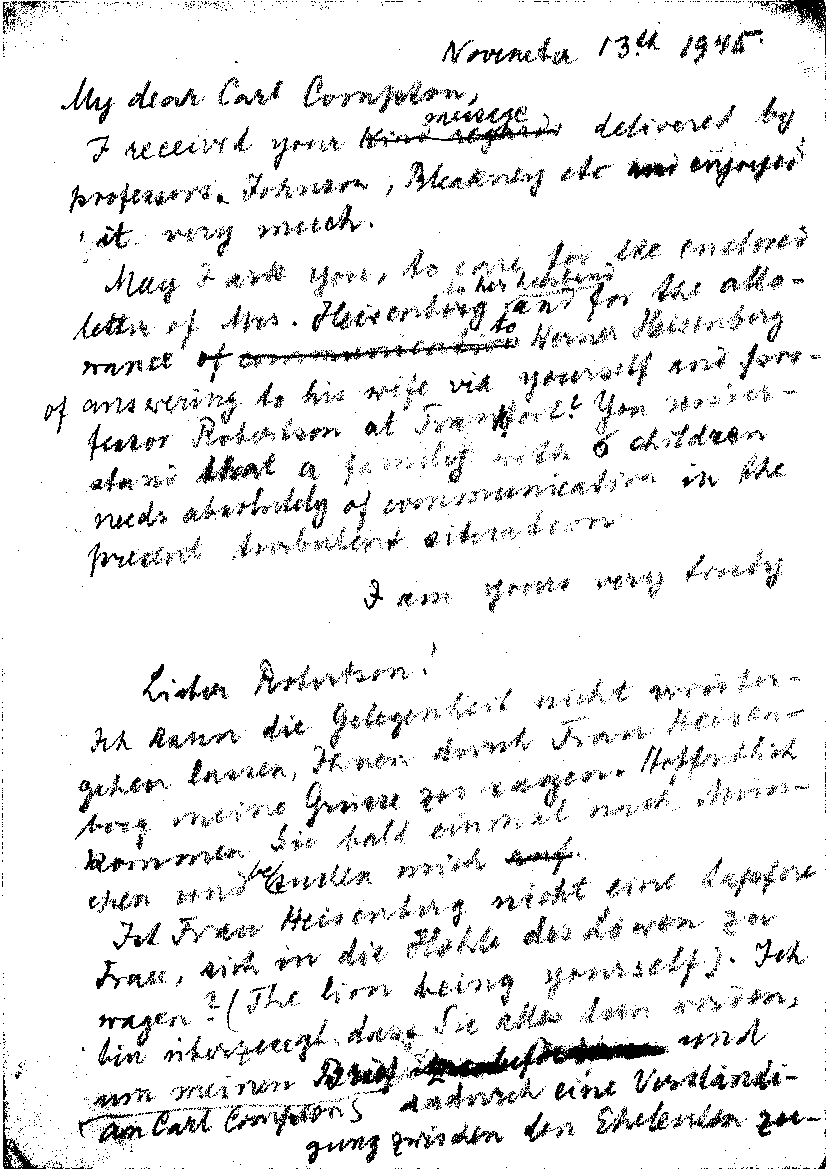 November 13th 1945.
My dear Carl Compton,
message
I received your kind regards delivered by
professors. Johnson, Bleakney etc and enjoyed
it very much.
May I ask you, to care for the enclosed
to her husband
letter of Mrs. Heisenberg and for the allo-
to
wance of communication Werner Heisenberg
of answering to his wife via yourself and pro-
fessor Robertson at Frankfort? You under-
stand that a family with 6 children
needs absolutely of communication in the
present turbulent situation
I am yours very truly
Lieber Robertson!
Ich kann die Gelegenheit nicht vorüber-
gehen lassen, Ihnen durch Frau Heisen-
berg meine Grüsse zu sagen. Hoffentlich
kommen Sie bald einmal nach Mün-
chen und besuchen mich auf.
Ist Frau Heisenberg nicht eine tapfere
Frau, sich in die Höhle des Löwen zu
wagen? (The lion being yourself). Ich
bin überzeugt, dass Sie alles tun werden,
um meinen Brief und
an Carl Compton dadurch eine Verständi-
gung zwischen den Eheleuten zu-